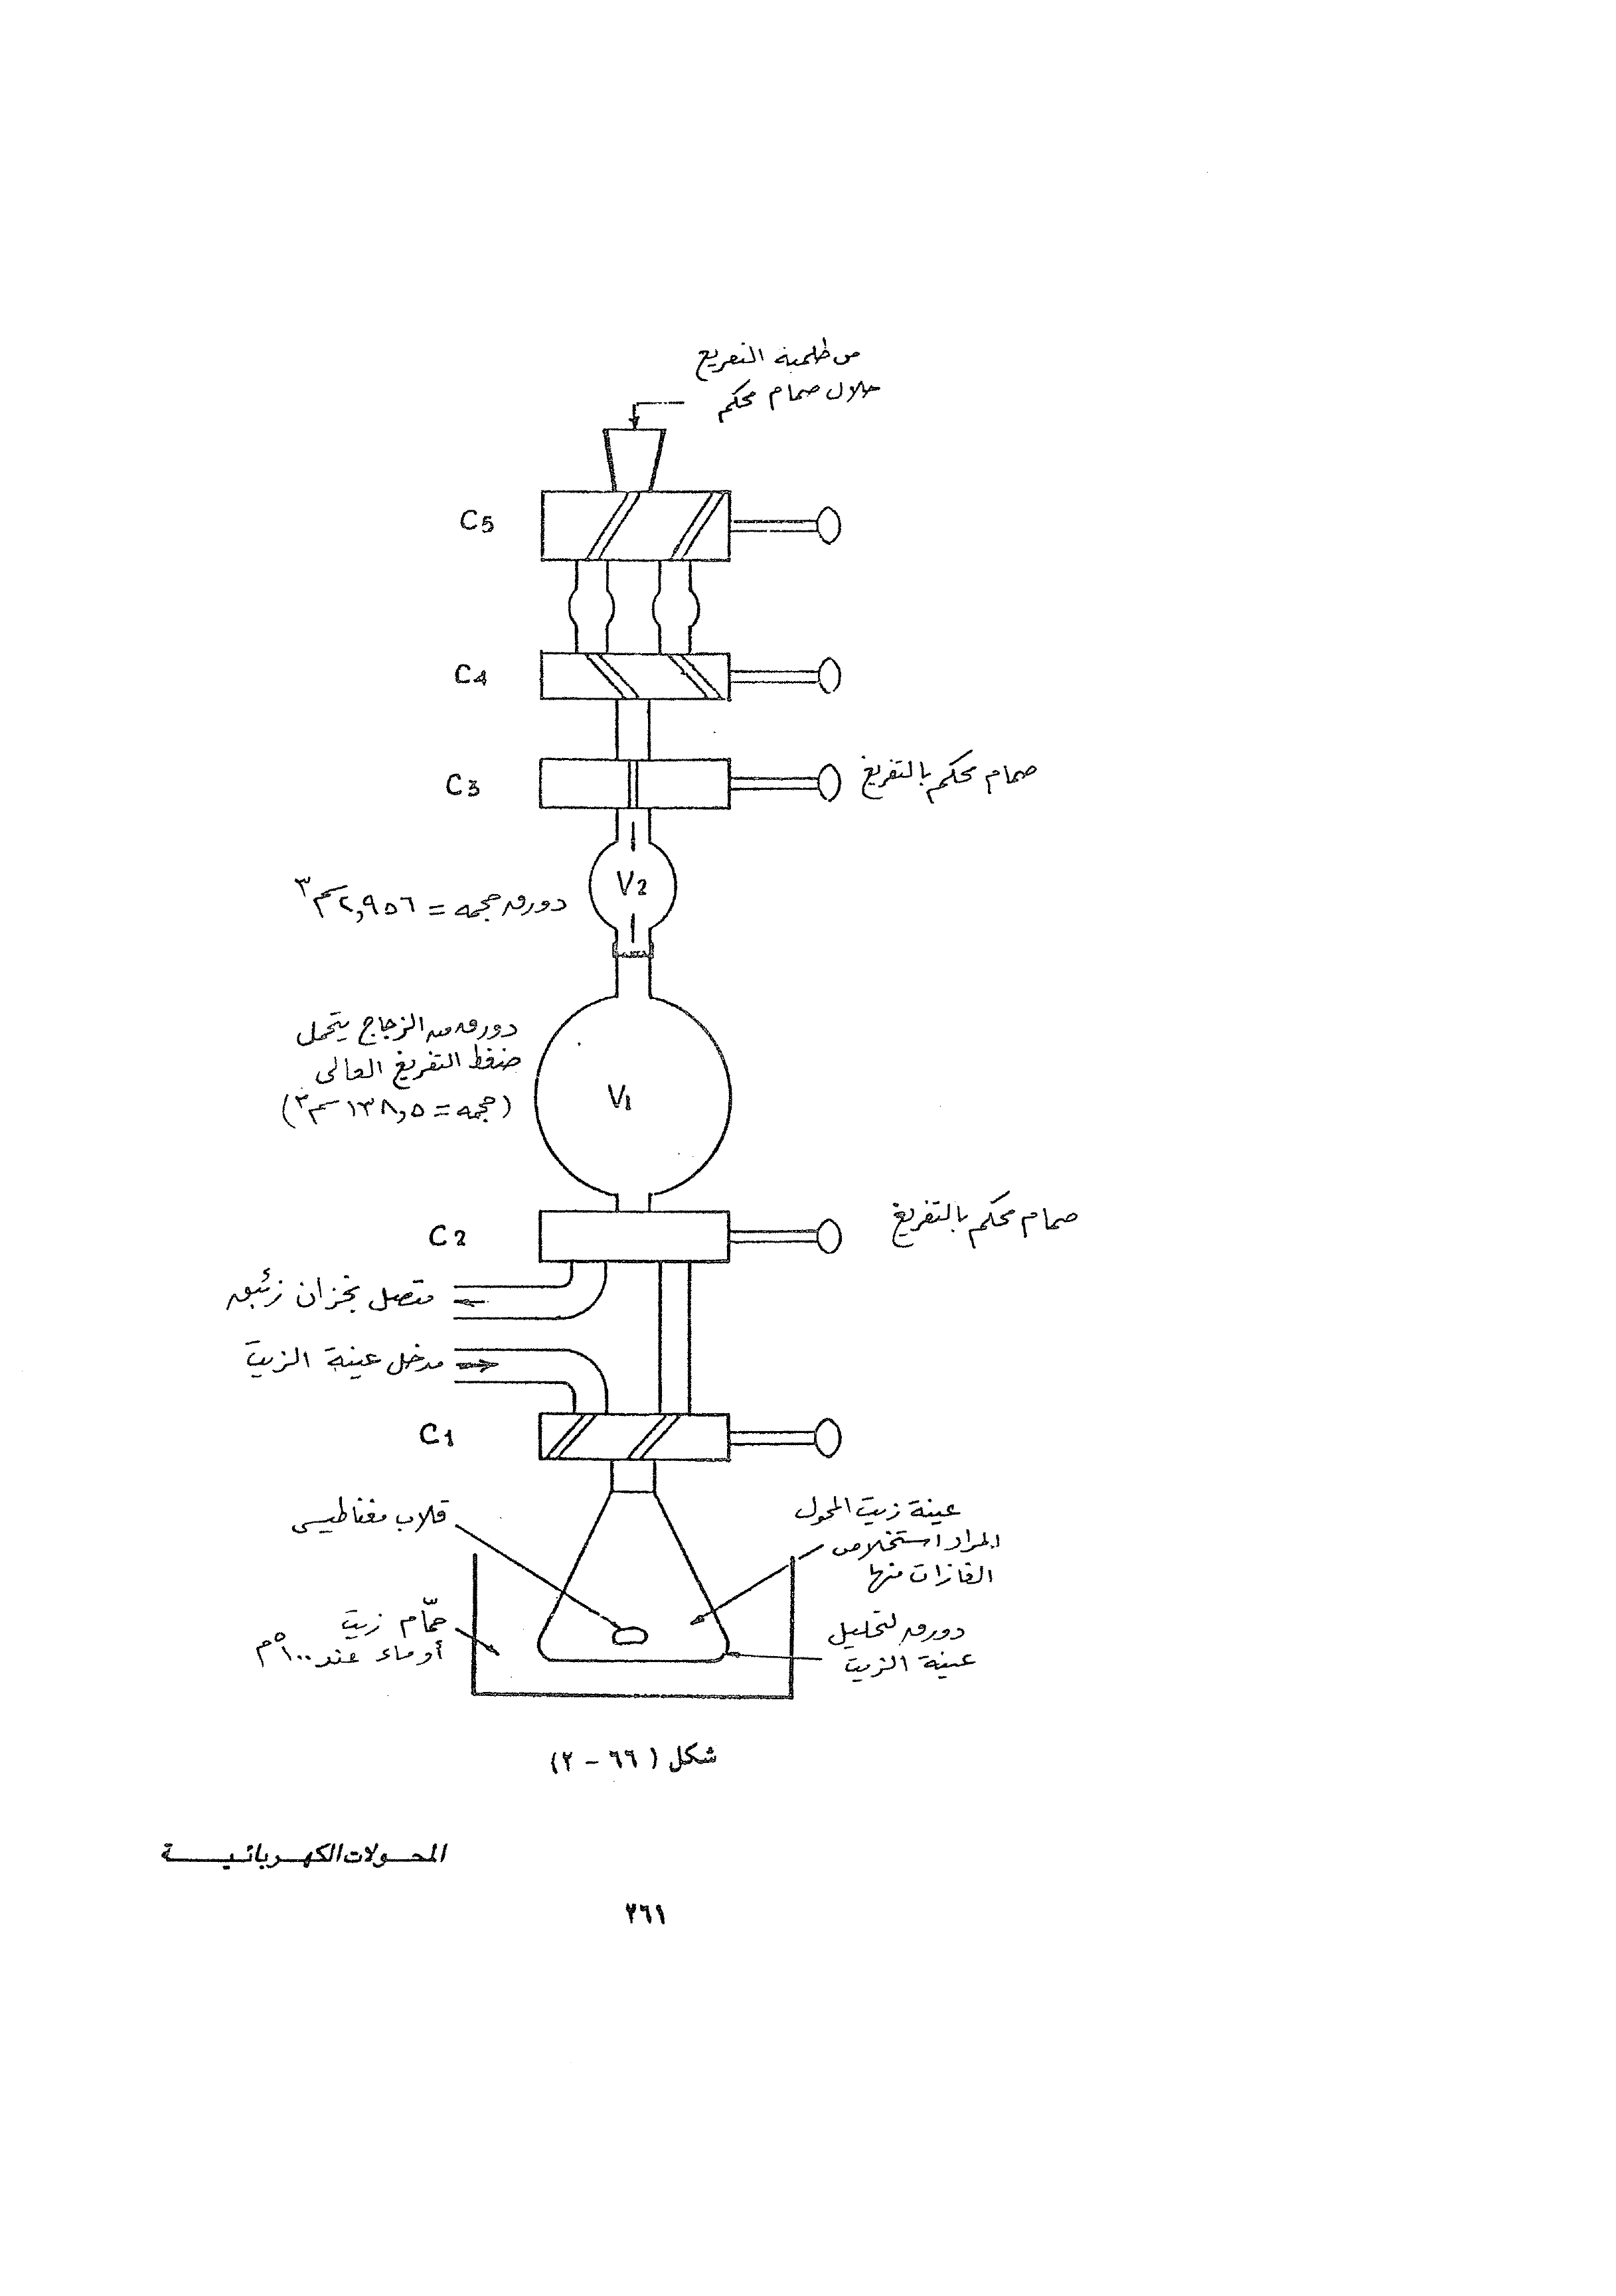 من طلمبة التفريغ
خلال صمام محكم
C5
C4
C3
صمام محكم بالتفريغ
V2
دورق حجمه = ٢,٩٥٦ سم٣
دورق من الزجاج يتحمل
ضغط التفريغ العالى
(حجمه = ١٣٨,٥ سم٣)
V1
C2
صمام محكم بالتفريغ
متصل بخزان زئبق
مدخل عينة الزيت
C1
قلاب مغناطيسى
عينة زيت المحول
المراد استخلاص
الغازات منها
حمّام زيت
أو ماء عند ١٠٠°م
دورق لتحليل
عينة الزيت
شكل (٦٦ - ٢)
المحولات الكهربائية
٢٦١